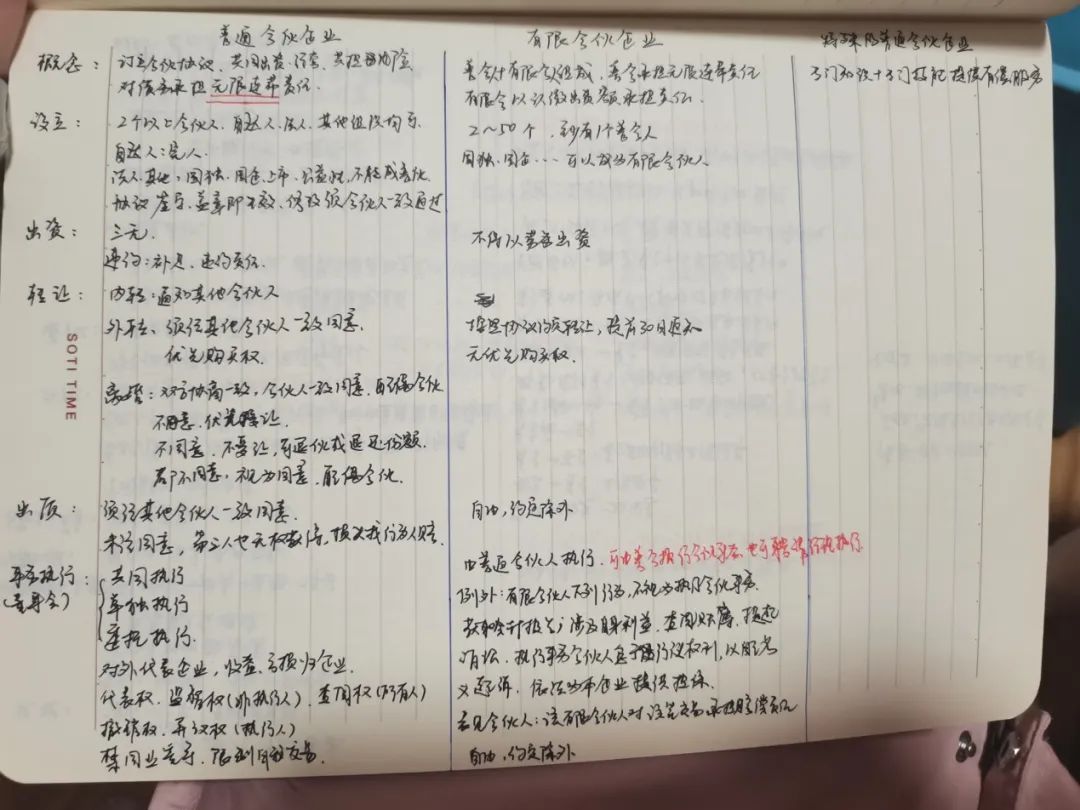 普通合伙企业
有限合伙企业
特殊的普通合伙企业
概念：
订立合伙协议、共同出资、经营、共担风险
对债务承担无限连带责任.
普合+有限合组成，普合承担无限连带责任
有限合以认缴出资额承担责任.
专门知识+专门技能提供有偿服务
设立：
2个以上合伙人、自然人、法人、其他组织均可
自然人：完人.
法人其他：国独、国企、上市、公益性，不能成普伙
协议签字、盖章即生效，修改须合伙人一致通过
2～50个，至少有1个普合人
国独、国企····可以成为有限合伙人.
出资：
三元.
违约：补足、违约责任.
不得以劳务出资
转让：
内转：通知其他合伙人
外转：须经其他合伙人一致同意.
优先购买权.
按照协议约定转让，提前30日通知
无优先购买权.
离婚：双方协商一致，合伙人一致同意，取得合伙
不同意，优先受让.
不同意、不受让，可退伙或退还份额.
都不同意，视为同意，取得合伙.
SOTI TIME
出质：
须经其他合伙人一致同意.
未经同意，第三人也无权取得，损失找行为人赔.
自由，约定除外
事务执行：
共同执行
单独执行
委托执行.
对外代表企业，收益、亏损归企业.
代表权、监督权(非执行人)、查阅权(所有人)
撤销权、异议权(执行人)
禁同业竞争、限制自我交易.
由普通合伙人执行.
例外：有限合伙人下列行为，不视为执行合伙事务.
涉及自身利益，查阅账簿，提起
诉讼，执行事务合伙人怠于行使权利，以自己
名义起诉，依法为本企业提供担保.
表见合伙人：该有限合伙人对该笔交易承担赔偿责任
自由，约定除外